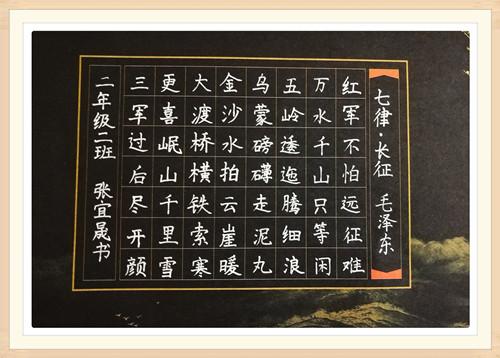 七律·长征 毛泽东
红军不怕远征难
万水千山只等闲
五岭逶迤腾细浪
乌蒙磅礴走泥丸
金沙水拍云崖暖
大渡桥横铁索寒
更喜岷山千里雪
三军过后尽开颜
二年级二班 张宜晟书